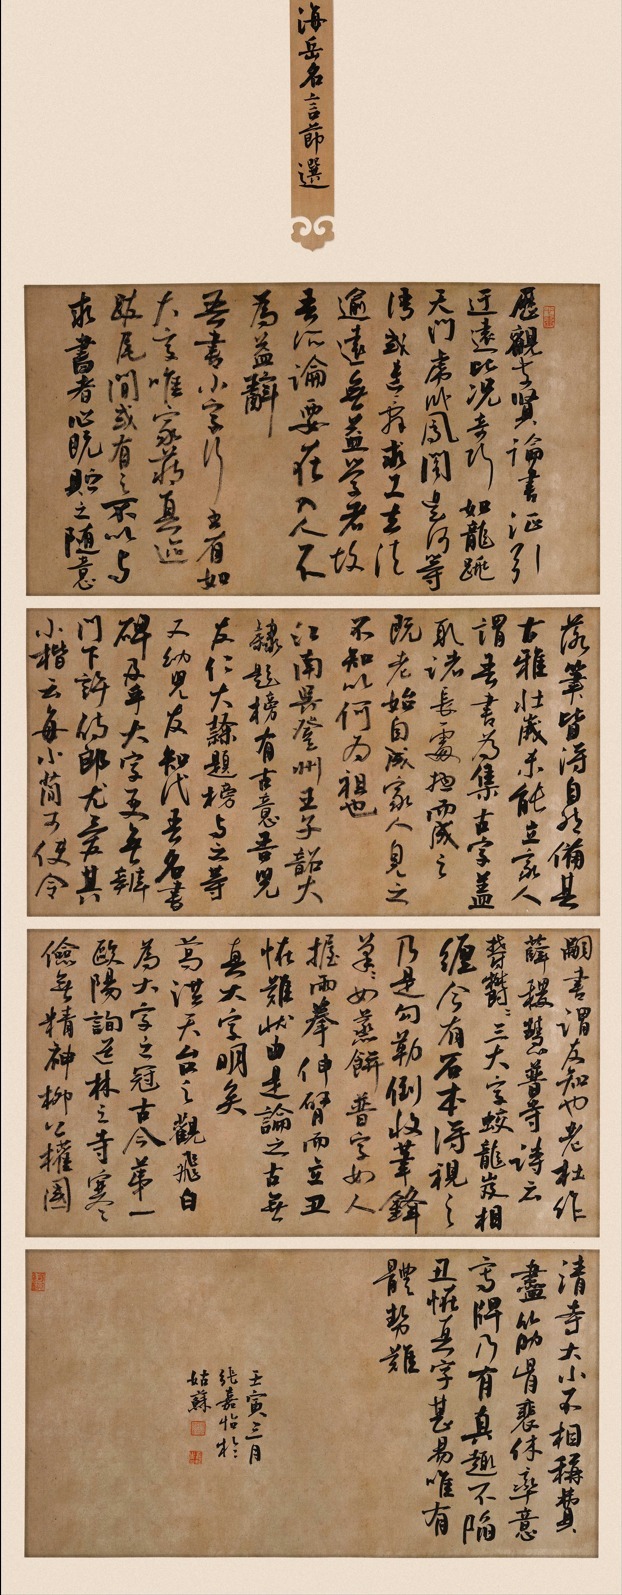 海岳名言節選
歷觀前賢論書徵引
迂遠比況奇巧如龍跳
天門虎臥鳳閣是何等
語或遣辭求工去法
逾遠無益學者故
吾所論要在入人不
為益辭
吾書小字行書有如
大字唯家藏真迹
跋尾間或有之不以與
求書者心既貯之隨意
落筆皆得自然備其
古雅壯歲未能立家人
謂吾書為集古字蓋
取諸長處總而成之
既老始自成家人見之
不知以何為祖也
江南吳登州王子韶大
隸題榜有古意吾兒
友仁大隸題榜與之等
又幼兒友知代吾名書
碑及手大字更無辨
門下許侍郎尤愛其
小楷云每小簡可使令
嗣書謂友知也老杜作
薛稷慧普寺詩云
鬱鬱三大字蛟龍岌相
纏今有石本得視之
乃是勾勒倒收筆鋒
筆筆如蒸餅普字如人
握兩拳伸臂而立丑
怪難狀由是論之古無
真大字明矣
葛洪天台之觀飛白
為大字之冠古今第一
歐陽詢道林之寺寒
儉無精神柳公權國
清寺大小不相稱費
盡筋骨裴休率意
寫牌乃有真趣不陷
丑怪真字甚易唯有
體勢難
壬寅三月
張嘉怡於
姑蘇